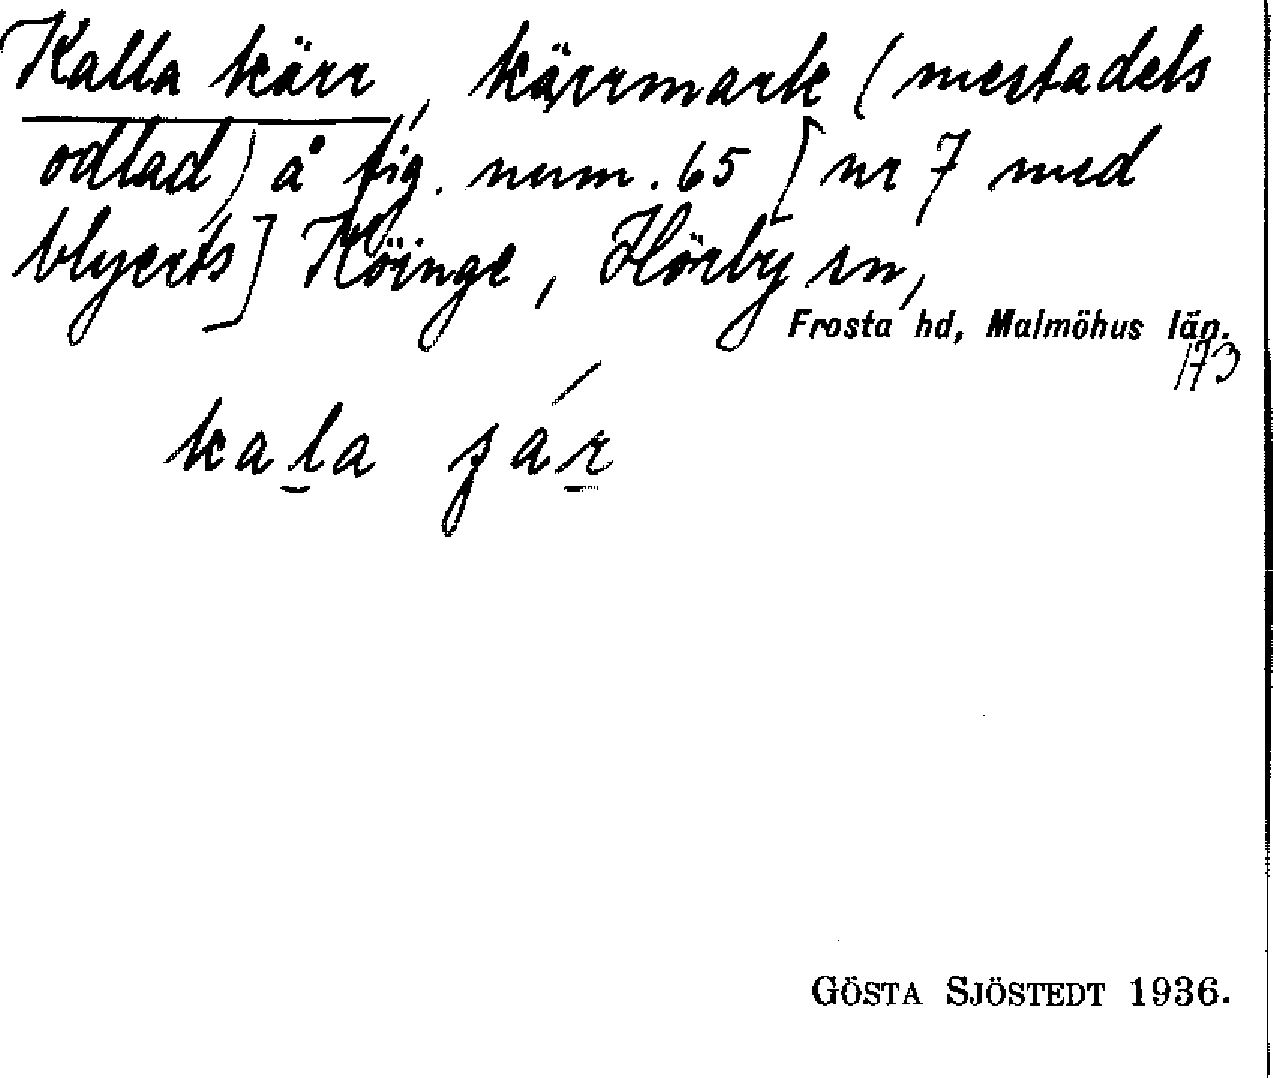 Kalla kärr, kärrmark (mestadels
odlad) å fig. num. 65 [nr 7 med
blyerts] Köinge, Hörby sn,
Frosta hd, Malmöhus län.
173
kala
GÖSTA SJÖSTEDT 1936.